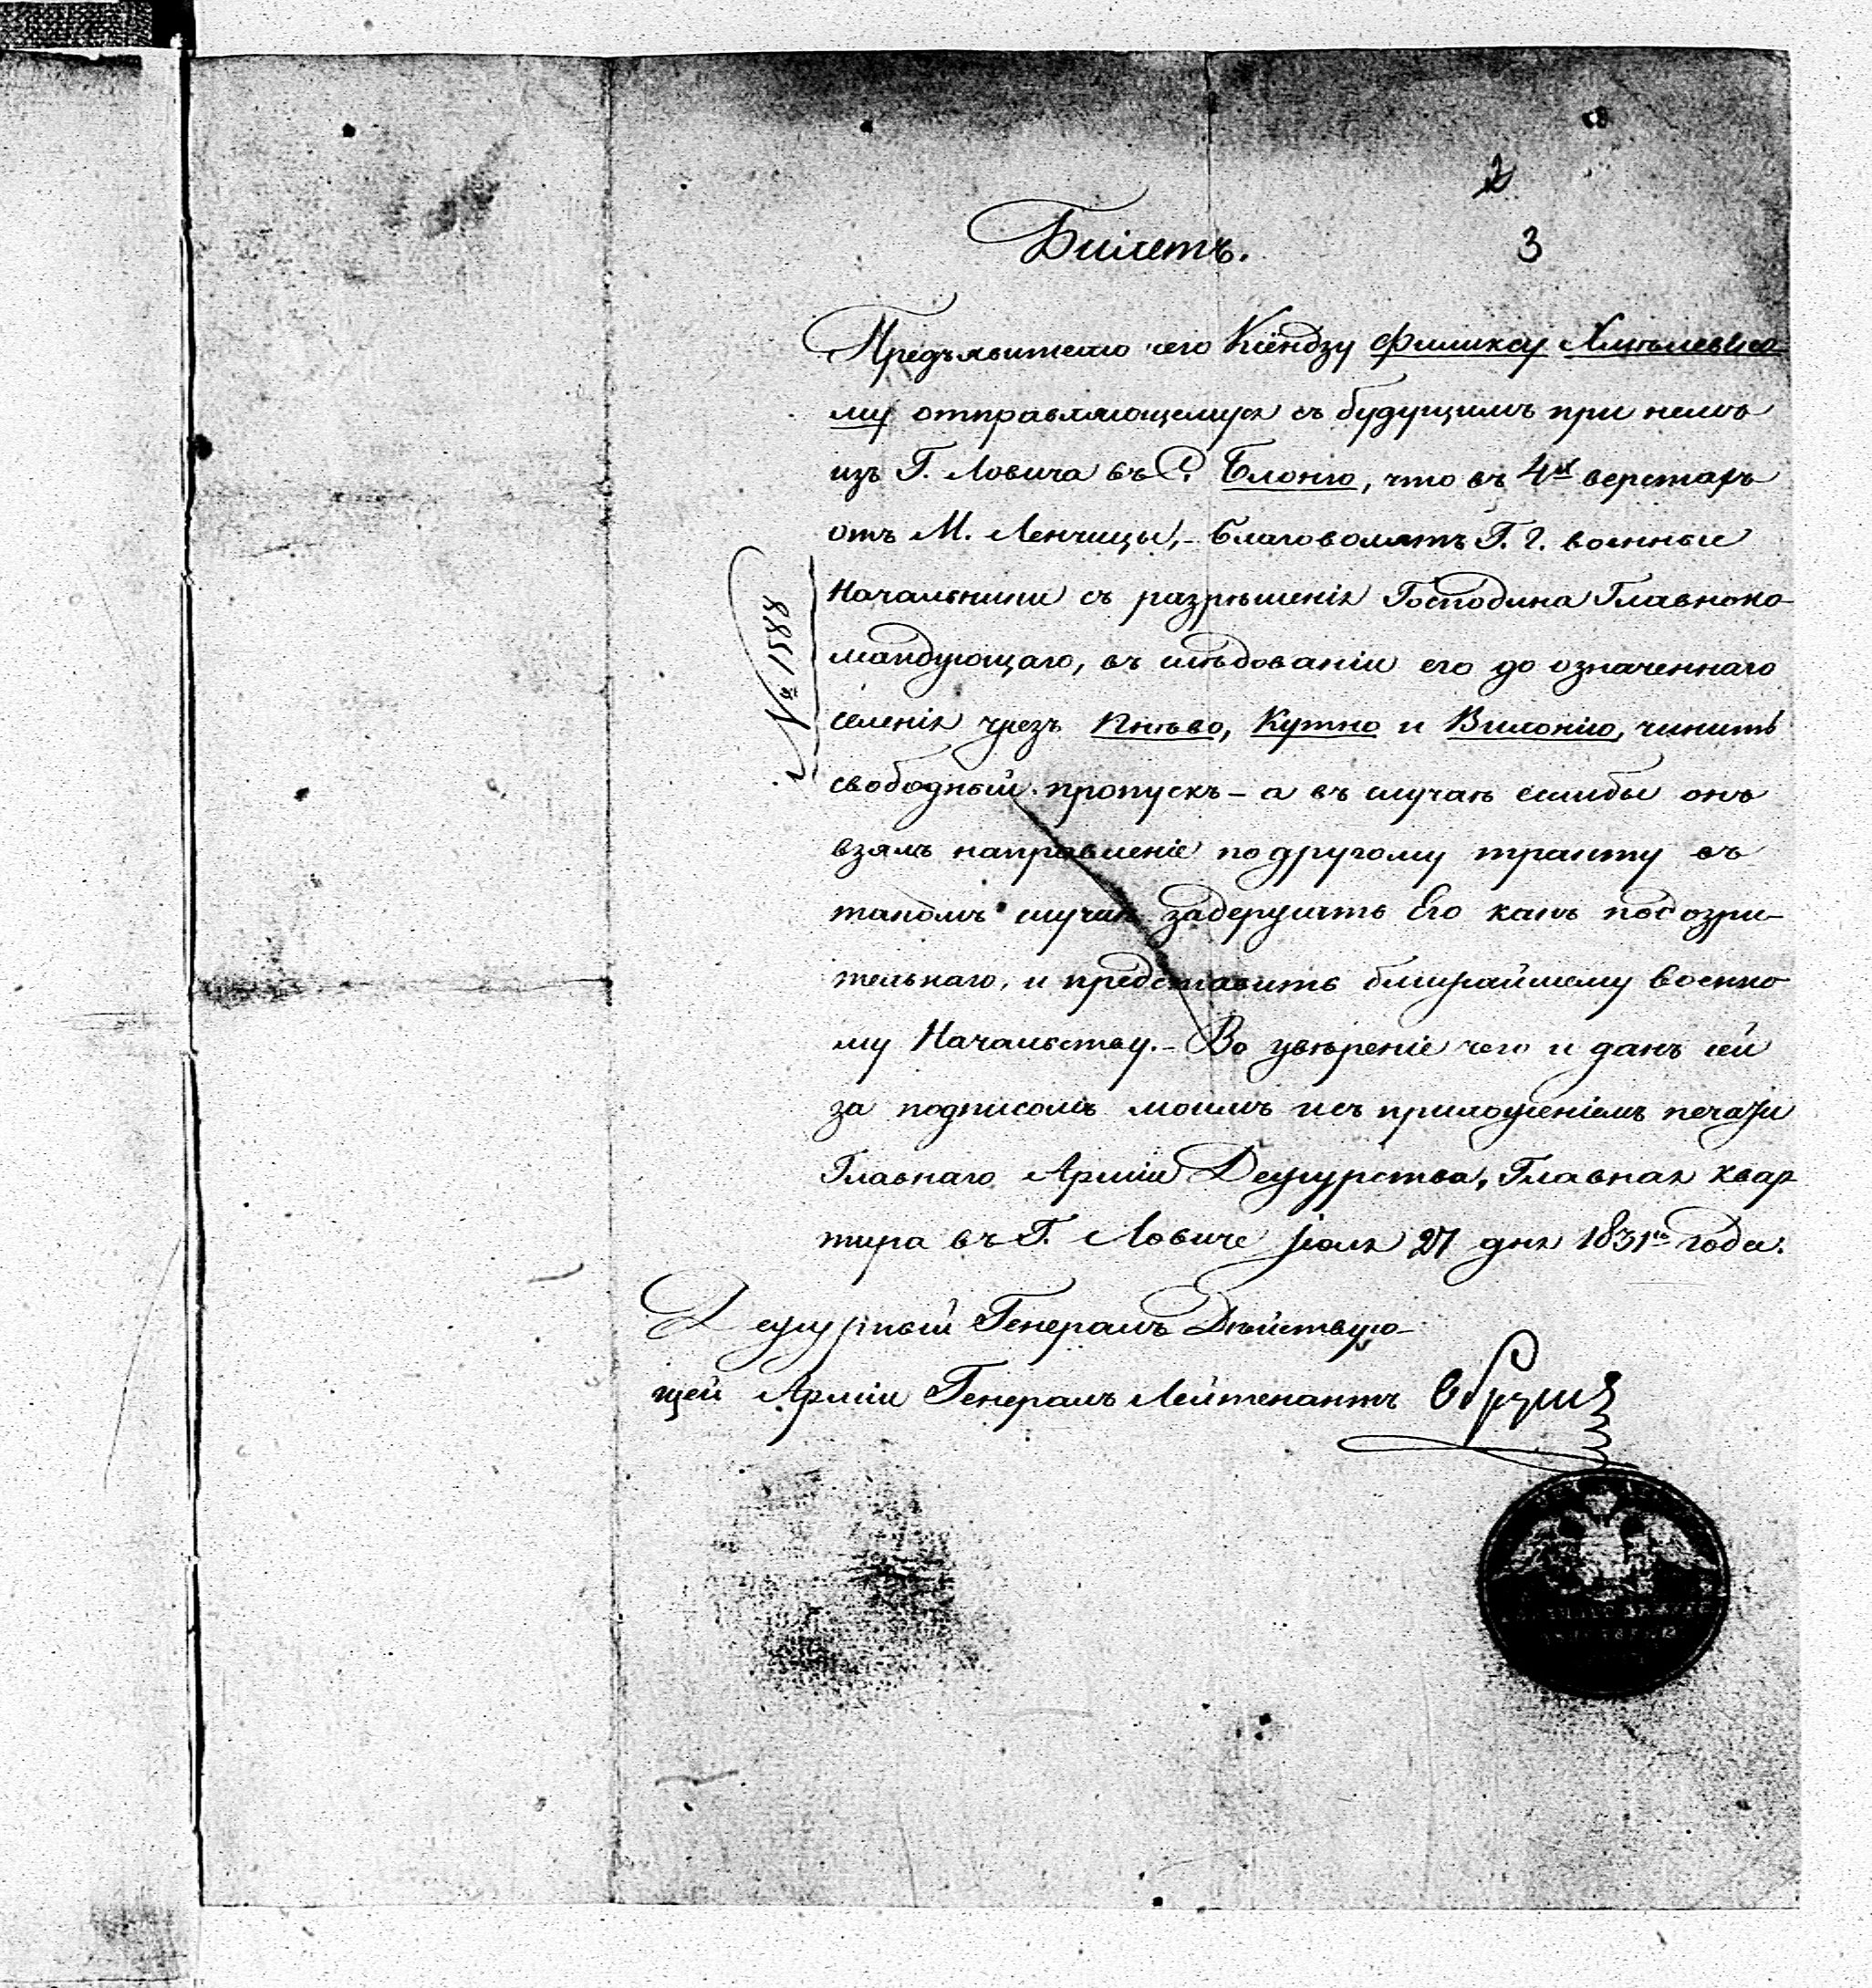 2
3
Билетъ.
Предъявителю сего Ксендзу Филиксу Хмѣлевско
му отправляющемуся съ будущимъ при немъ
изъ Г. Ловича въ С. Блонiю, что въ 4х верстахъ
отъ М. Ленчицы,- благоволятъ Г. Г. военные
Начальники съ разрѣшенiя Господина Главноко-
мандующаго, въ слѣдованiи его до означеннаго
селенiя чрезъ Пнѣво, Кутно и Вилонiю, чинить
свободный пропускъ - а въ случаѣ еслибы онъ
взялъ направленiе по другому тракту въ
такомъ случаѣ задержать Его какъ подозри-
тельнаго, и представить ближайшему военно
му Начальству.- Во увѣренiе чего и данъ сей
за подписомъ моимъ и съ приложенiемъ печати
Главнаго Армiи Дежурства, Главная квар
тира въ Г. Ловиче Iюля 27 дня 1831го года.
№ 1588
Дежурный Генералъ Дѣйствую-
щей Армiи Генералъ Лейтенантъ Обручев